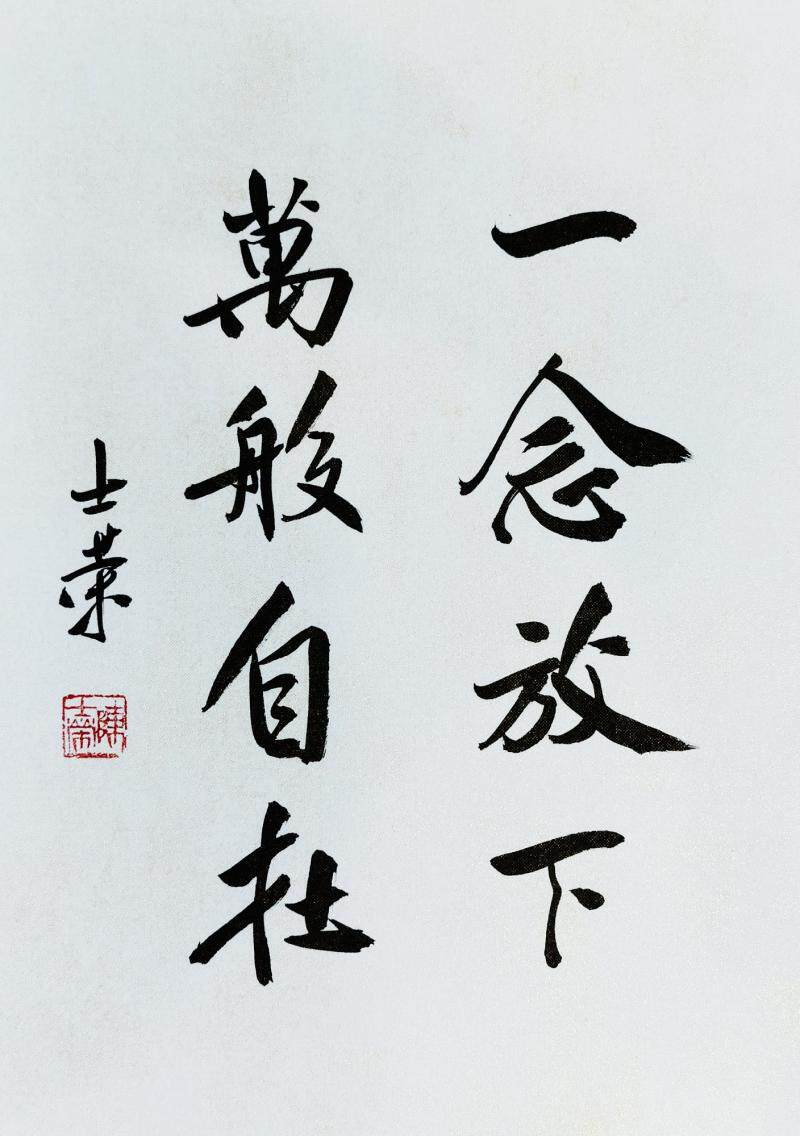 一念放下
萬般自在
士荣
陳士榮